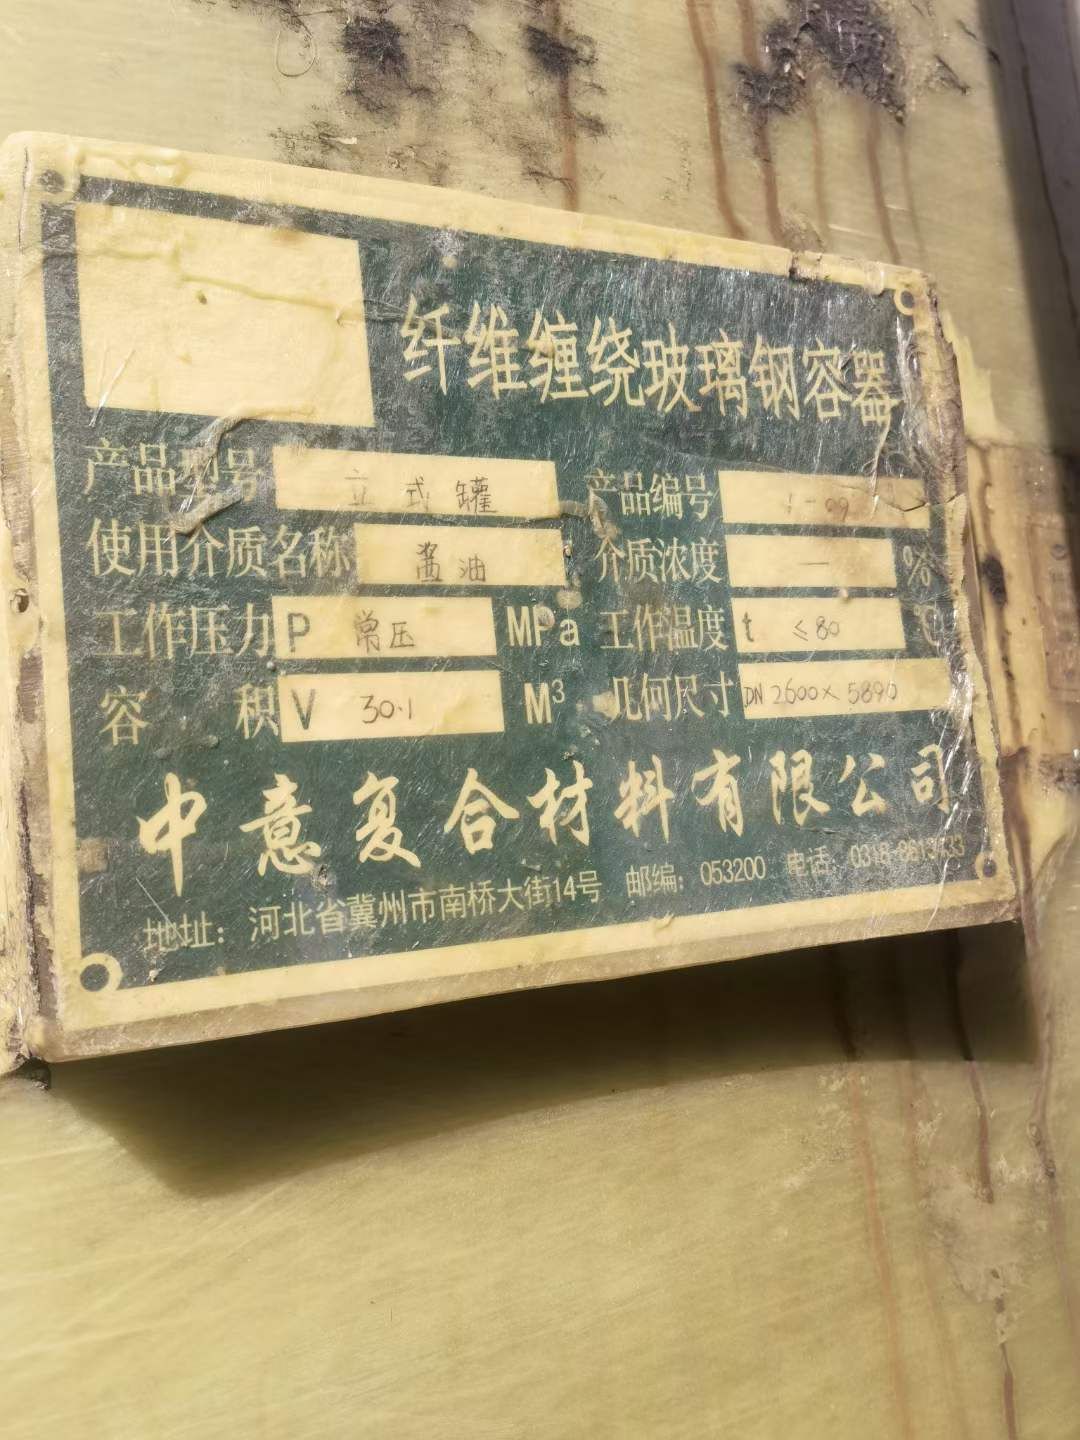 纤维缠绕玻璃钢容器
产品型号 立式罐 产品编号
使用介质名称 酱油 介质浓度 — %
工作压力 P 常压 MPa 工作温度 t ≤80 ℃
容 积 V 30.1 M³ 几何尺寸 DN 2600×5890
中意复合材料有限公司
地址：河北省冀州市南桥大街14号 邮编：053200 电话：